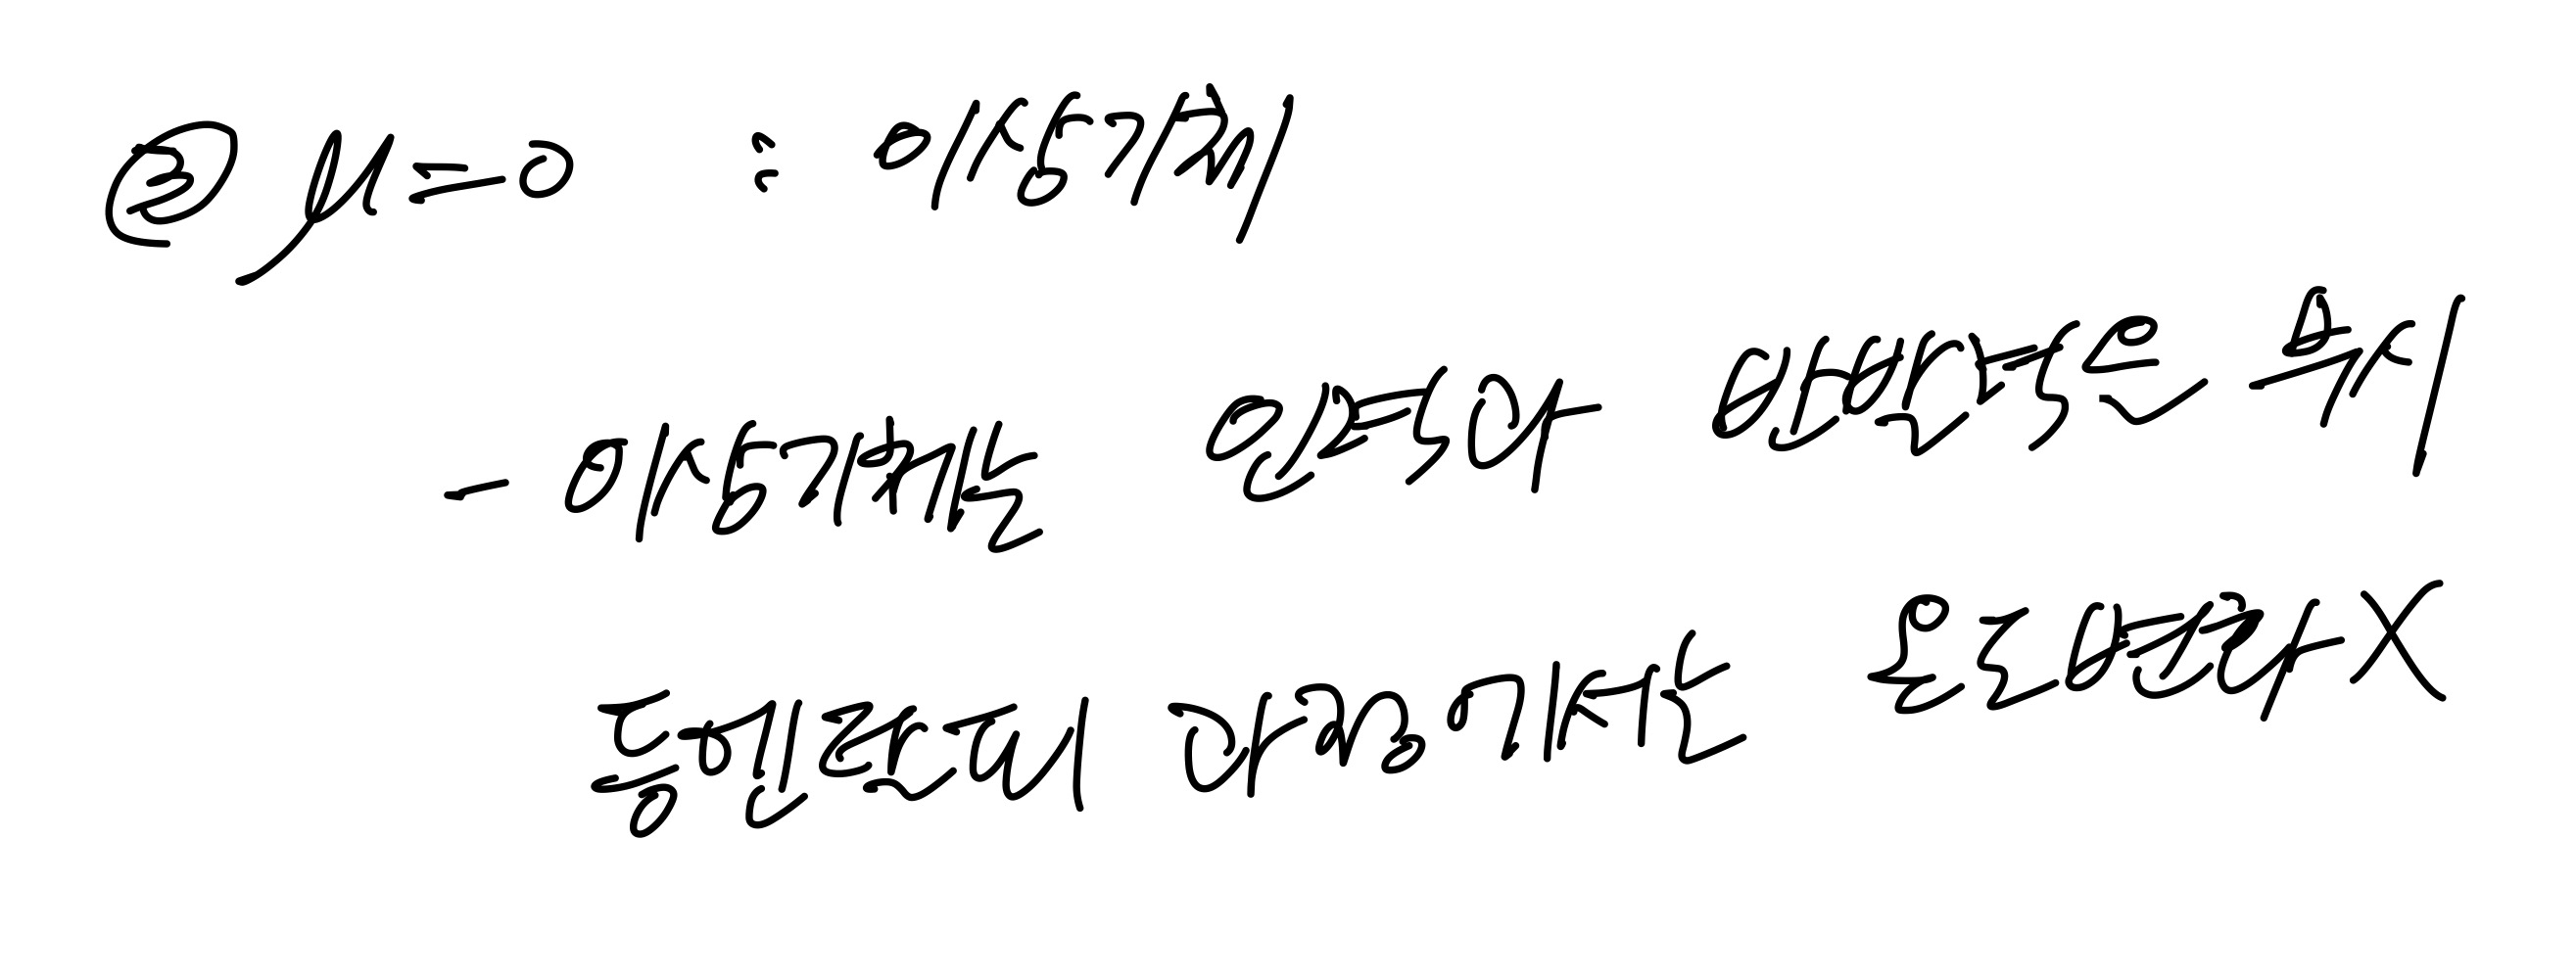 ③ μ=0 : 이상기체
- 이상기체는 인력과 반발력은 무시
등엔탈피 과정에서는 온도변화 X